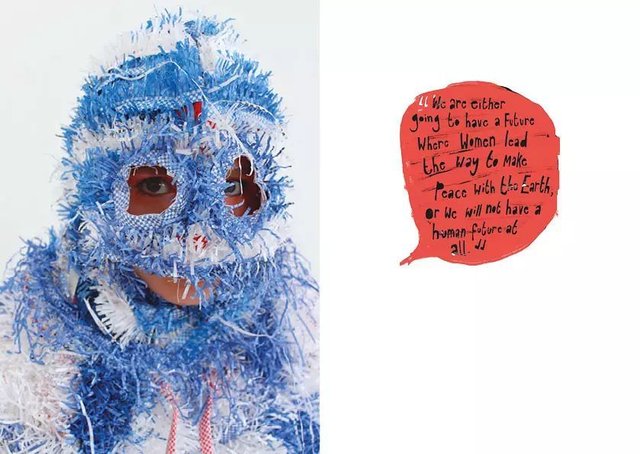 “ We are either
going to have a Future
Where Women lead
the way to Make
Peace With the Earth,
or We will not have a
human future at
all. ”